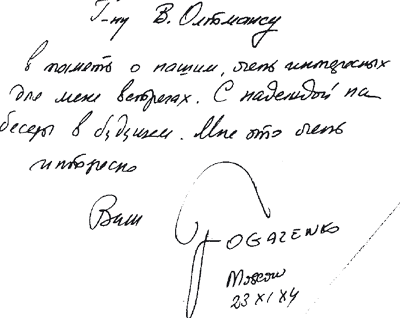 Г-ну В. Олтмансу
в память о наших, очень интересных
для меня встречах. С надеждой на
беседы в будущем. Мне это очень
интересно
Ваш
Moscow
23 XI X4